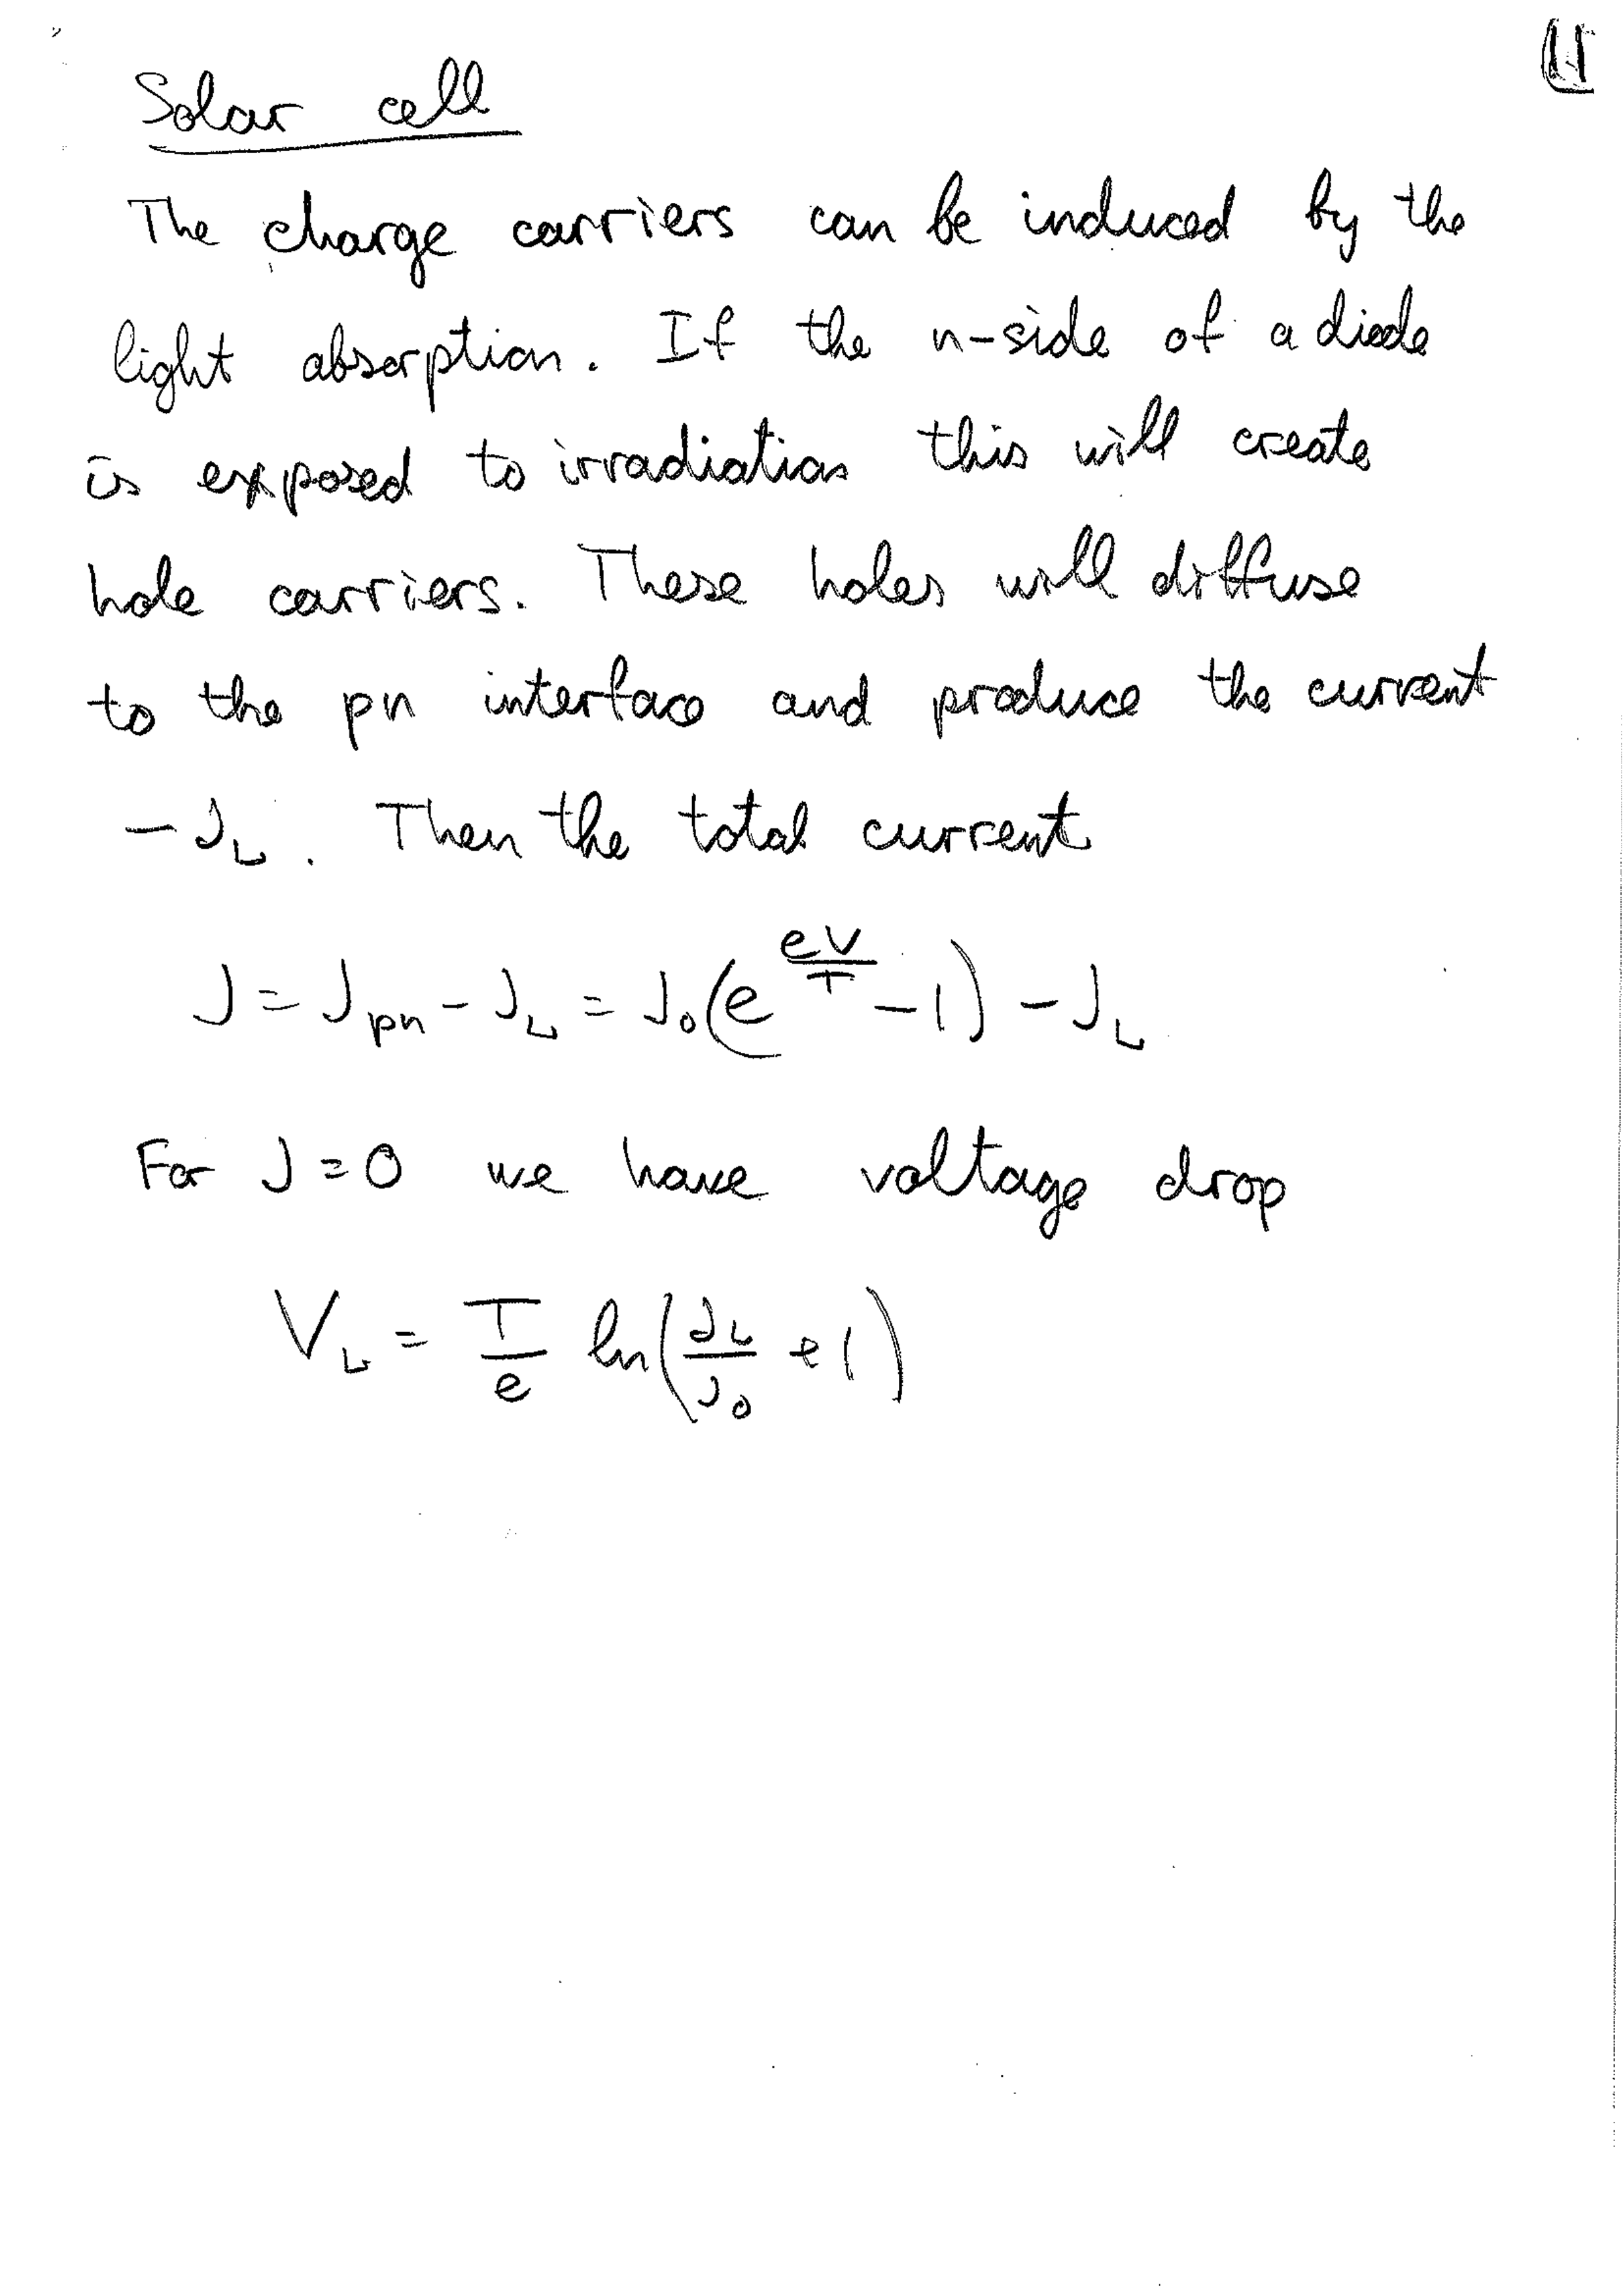 11
Solar cell
The charge carriers can be induced by the
light absorption. If the n-side of a diode
is exposed to irradiation this will create
hole carriers. These holes will diffuse
to the pn interface and produce the current
-J_L. Then the total current
J = J_pn - J_L = J_0(e^{eV/T} - 1) - J_L
For J = 0 we have voltage drop
V_L = T/e ln(J_L/J_0 + 1)